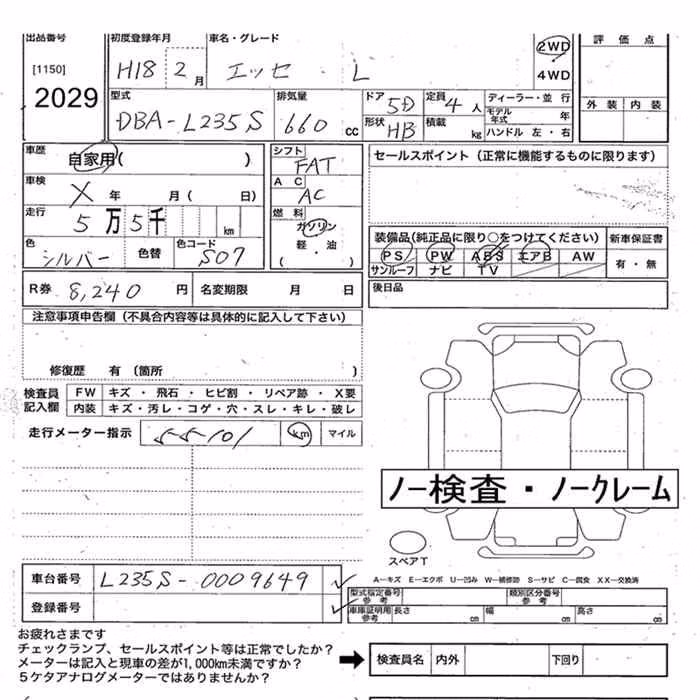 出品番号 初度登録年月 車名・グレード 評価点
[1150] H18 2月 エッセ L 2WD
4WD
2029 型式 排気量 ドア 5D 定員 4人 ディーラー・並行 外装 内装
DBA-L235S 660cc 形状 HB 積載 kg モデル年式 年
ハンドル 左・右
車歴 自家用( ) シフト FAT セールスポイント(正常に機能するものに限ります)
車検 X 年 月( 日) AC AC
走行 5万5千 km 燃料 ガソリン
軽・油
( )
装備品(純正品に限り○をつけてください) 新車保証書
色 シルバー 色替 色コード S07 PS PW ABS エアB AW 有・無
サンルーフ ナビ TV
R券 8,240円 名変期限 月 日 後日品
注意事項申告欄(不具合内容等は具体的に記入して下さい)
修復歴 有(箇所 )
検査員記入欄 FW キズ・飛石・ヒビ割・リペア跡・X要
内装 キズ・汚レ・コゲ・穴・スレ・キレ・破レ
走行メーター指示 55101 km マイル
ノー検査・ノークレーム
スペアT
A―キズ E―エクボ U―凹み W―補修跡 S―サビ C―腐食 XX―交換済
車台番号 L235S-0009649 型式指定番号 参考 類別区分番号 参考
登録番号 車庫証明用 参考 長さ cm 幅 cm 高さ cm
お疲れさまです
チェックランプ、セールスポイント等は正常でしたか?
メーターは記入と現車の差が1,000km未満ですか? ➡ 検査員名 内外 下回り
5ケタアナログメーターではありませんか?